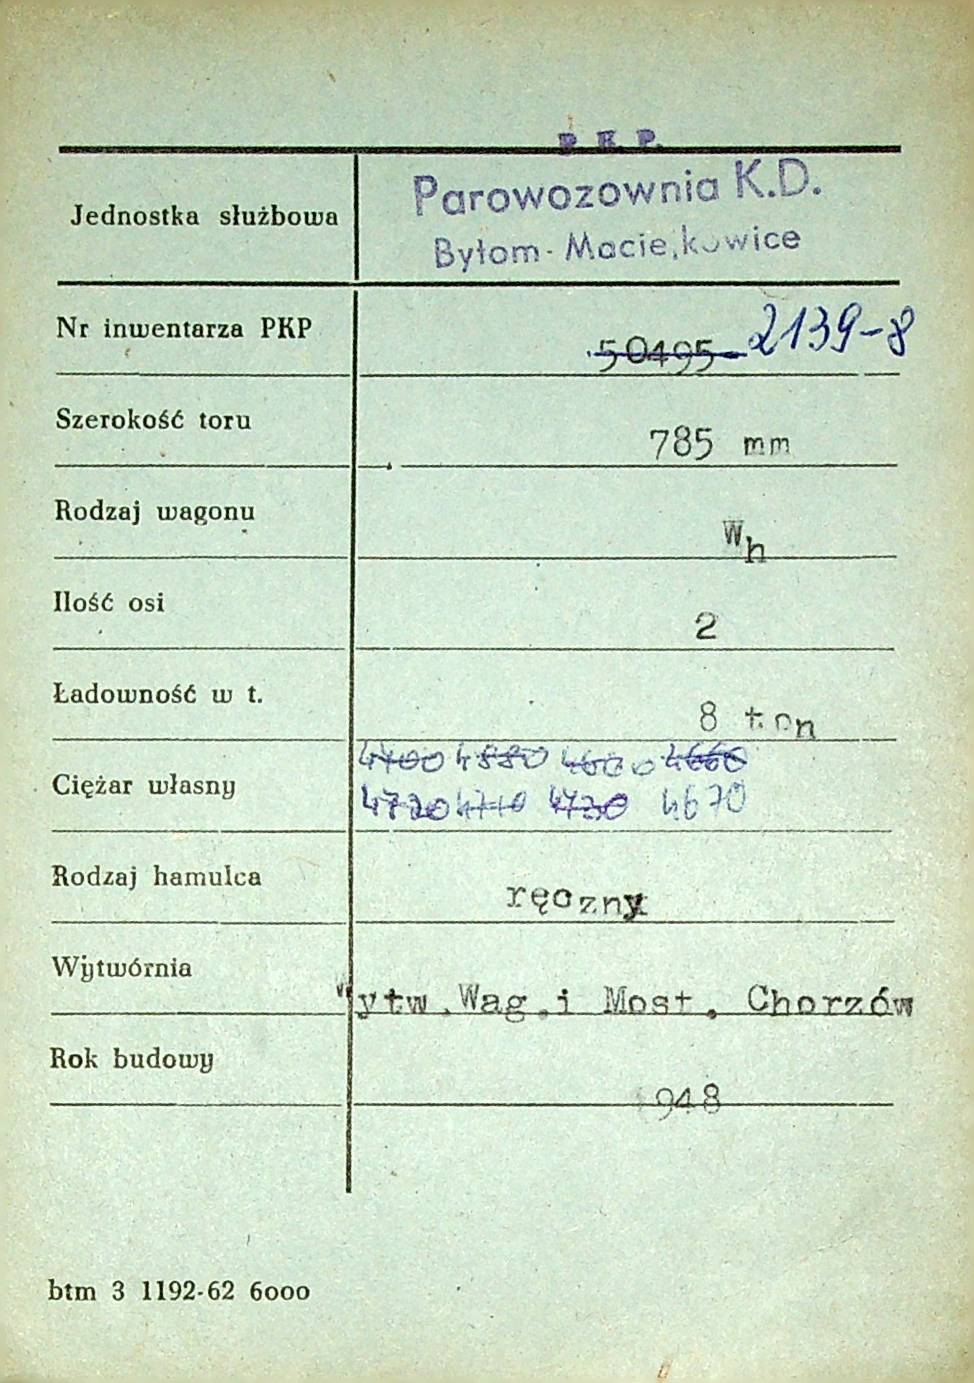 P.K.P.
Parowozownia K.D.
Jednostka służbowa
Bytom-Maciejkowice
Nr inwentarza PKP 50495 2139-8
Szerokość toru 785 mm
Rodzaj wagonu Wh
Ilość osi 2
Ładowność w t. 8 ton
4700 4880 4600 4660
Ciężar własny
4720 4710 4730 4670
Rodzaj hamulca ręczny
Wytwórnia Wytw.Wag.i Most. Chorzów
Rok budowy 1948
btm 3 1192-62 6ooo